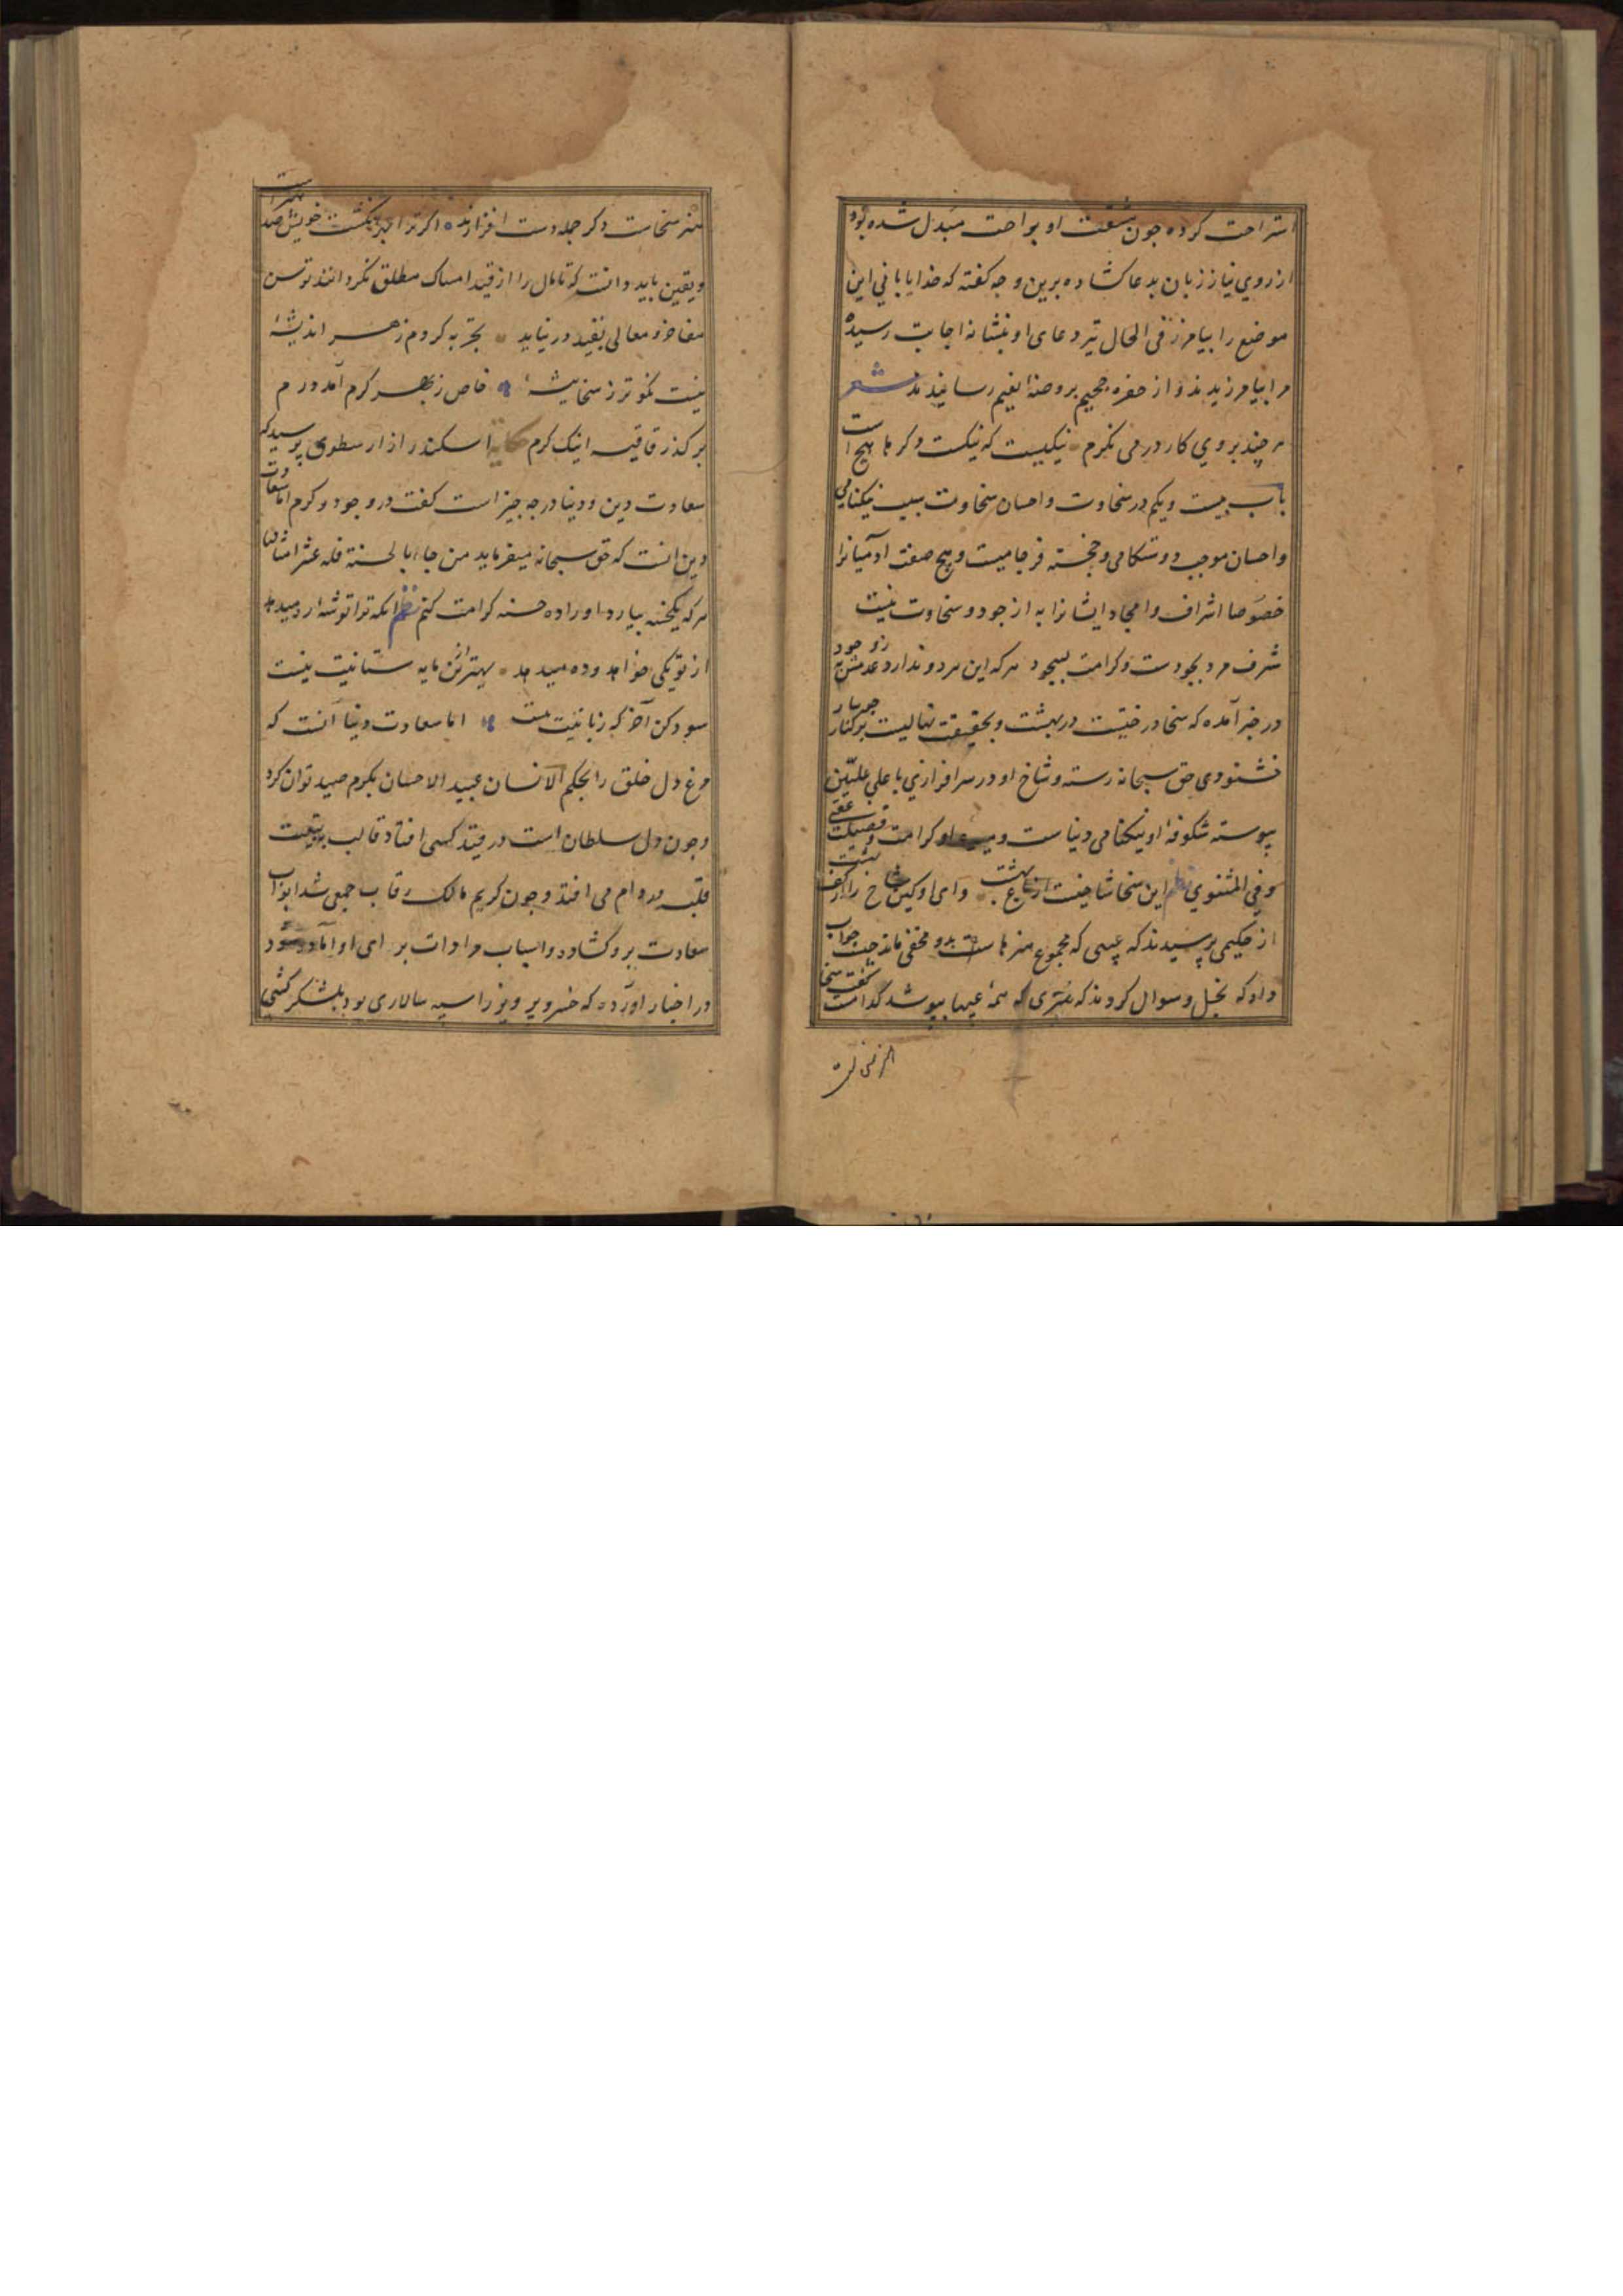 استراحت کرده جون مشقت او براحت مبدل شده بود
از روي نیاز زبان بدعا کشاده برین وجه کفته که خدایا بانی این
موضع را بیامرز فی الحال تیر دعای او بنشانه اجابت رسیده
مرا بیامرزیدند و از حفره جحیم بروضه نعیم رسانیدند شعر
هر چند بروي کار در می نکرم نیکیست که نیکست و دکرها هیج است
باب بیست ویکم در سخاوت و احسان سخاوت سبب نیکنامی
و احسان موجب دوستکامی و خجسته فرجامیست وهیج صفت ادمیانرا
خصوصا اشراف و امجاد ایشانرا به از جود و سخاوت نیست
شرف مرد بجودست و کرامت بسجود هر که این هردو ندارد عدمش به ز وجود
در خبر آمده که سخا درختیست در بهشت و بحقیقت نهالیست بر کنار جویبار
خشنودی حق سبحانه رسته و شاخ او در سرافرازي با علی علیین
پیوسته شکوفه او نیکنامی دنیاست و میوه او کرامت و فضیلت عقبی
وفي المثنوي نظم این سخا شاخیست از باغ بهشت وای او کین شاخ را از کف بهشت
از حکیمی پرسیدند که عیبی که مجموع هنرها بدو مخفی ماند جیست جواب
داد که بخل و سوال کردند که هنری که همه عیبها بپوشد کدامست کفت سخا
هنر سخاست دکر جمله دست افزارند اکر ترا بهر انکشت خویش صد هنرست
ویقین باید دانست که تا مال را از قید امساک مطلق نکردانند توسن
مفاخر و معالی بقید در نیاید تجربه کردم ز هر اندیشهٔ
نیست نکوتر ز سخا پیشهٔ خاص ز بهر کرم آمد درم
بر کذر قافیه اینک کرم حکایة اسکندر از ارسطوی پرسید که
سعادت دین ودنیا در جه جیز است کفت در وجود و کرم اما سعادت
دین انست که حق سبحانه میفرماید من جاء بالحسنة فله عشر امثالها
هر که یکحسنه بیارد او را ده حسنه کرامت کنم نظم انکه ترا توشه ره میدهد
از تو یکی خواهد و ده میدهد بهتر ازین مایه ستانیت نیست
سود کن آخر که زیانیت نیست اما سعادت دنیا آنست که
مرغ دل خلق را بحکم الانسان عبید الاحسان بکرم صید توان کرد
وجون دل سلطان است در قید کسی افتاد قالب بتبعیت
قلب بدو رام می افتد وجون کریم مالک رقاب جمعی شد ابواب
سعادت برو کشاده و اسباب مرادات برای او آماده شود
در اخبار آورده که خسرو پرویز را سپه سالاری بود بلشکر کشی